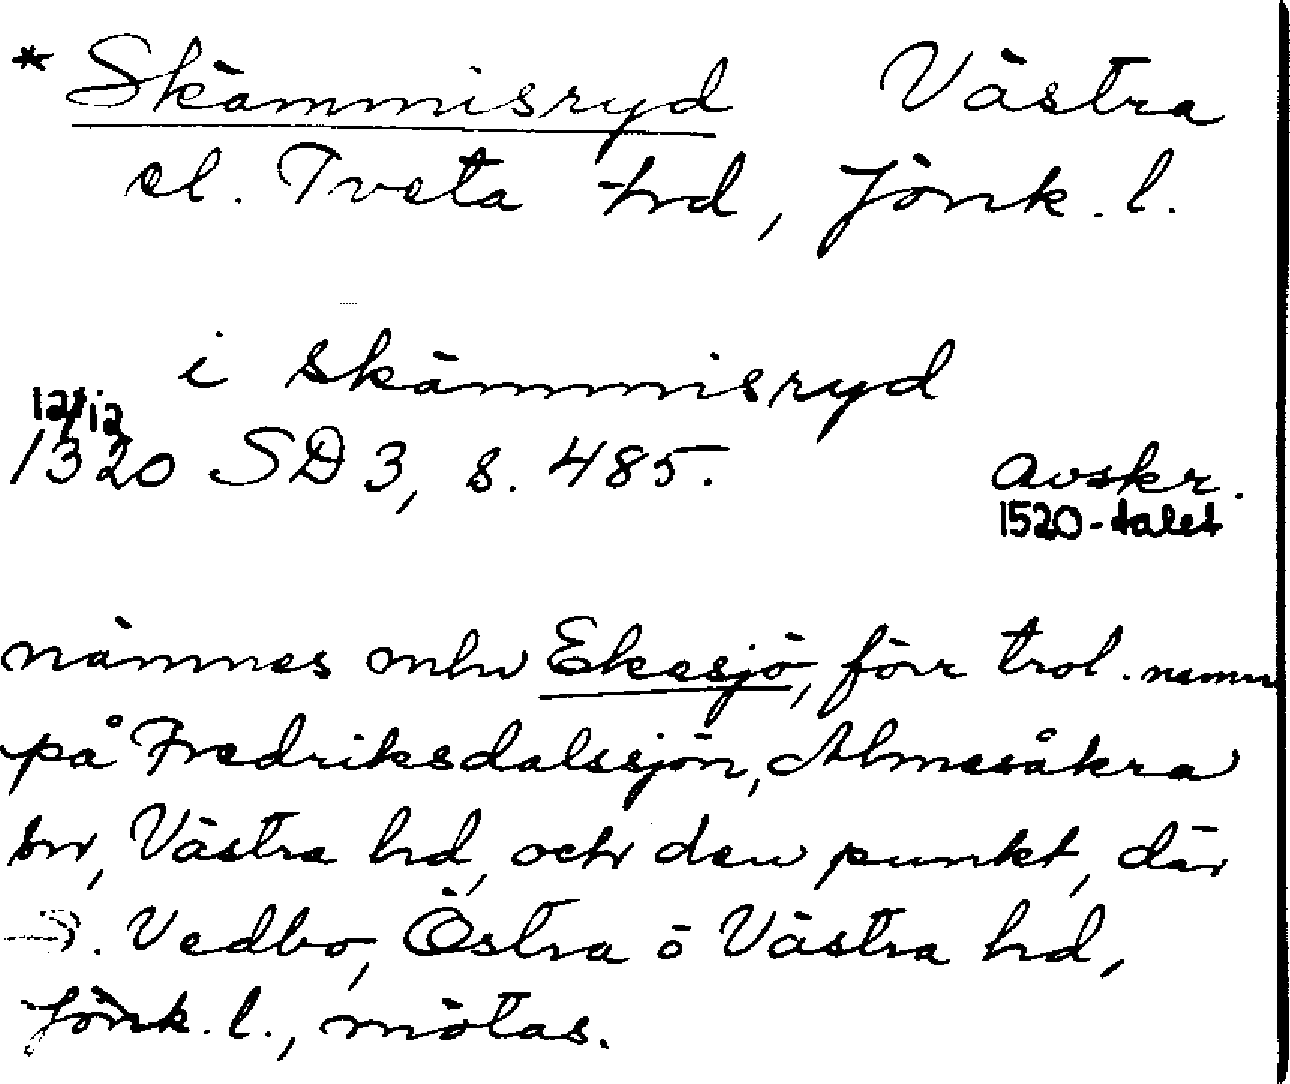 * Skämmisryd Västra
el. Tveta hrd, Jönk. l.
i skämmisryd
12/12
1320 SD 3, s. 485. Avskr.
1520-talet
nämnes mlw Ekesjö, förr trol. namn
på Fredriksdalssjön, Almesåkra
sn, Västra hd, och den punkt, där
S. Vedbo, Östra o Västra hd,
Jönk. l., mötas.